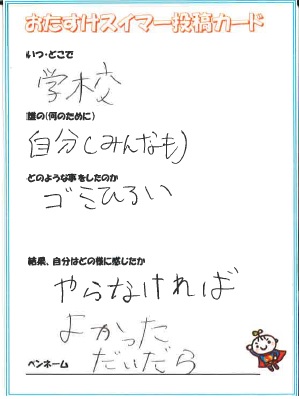 おたすけスイマー投稿カード
いつ・どこで
学校
誰の(何のために)
自分(みんなも)
どのような事をしたのか
ゴミひろい
結果、自分はどの様に感じたか
やらなければ
よかった
だいだら
ペンネーム